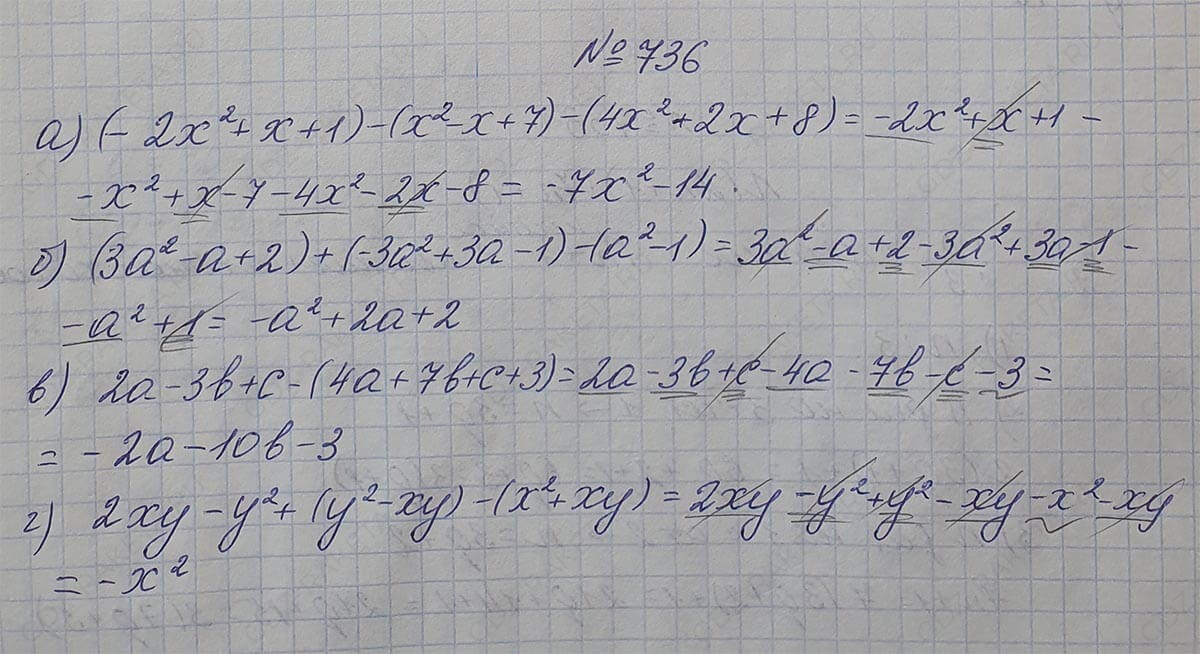 № 736
а) (- 2x²+x+1)-(x²-x+7)-(4x²+2x+8)=-2x²+x+1 -
-x²+x-7-4x²-2x-8= -7x²-14.
б) (3a²-a+2)+(-3a²+3a-1)-(a²-1)=3a²-a+2-3a²+3a-1-
-a²+1= -a²+2a+2
в) 2a-3b+c-(4a+7b+c+3)=2a-3b+c-4a-7b-c-3=
=-2a-10b-3
г) 2xy-y²+(y²-xy)-(x²+xy)=2xy-y²+y²-xy-x²-xy
=-x²